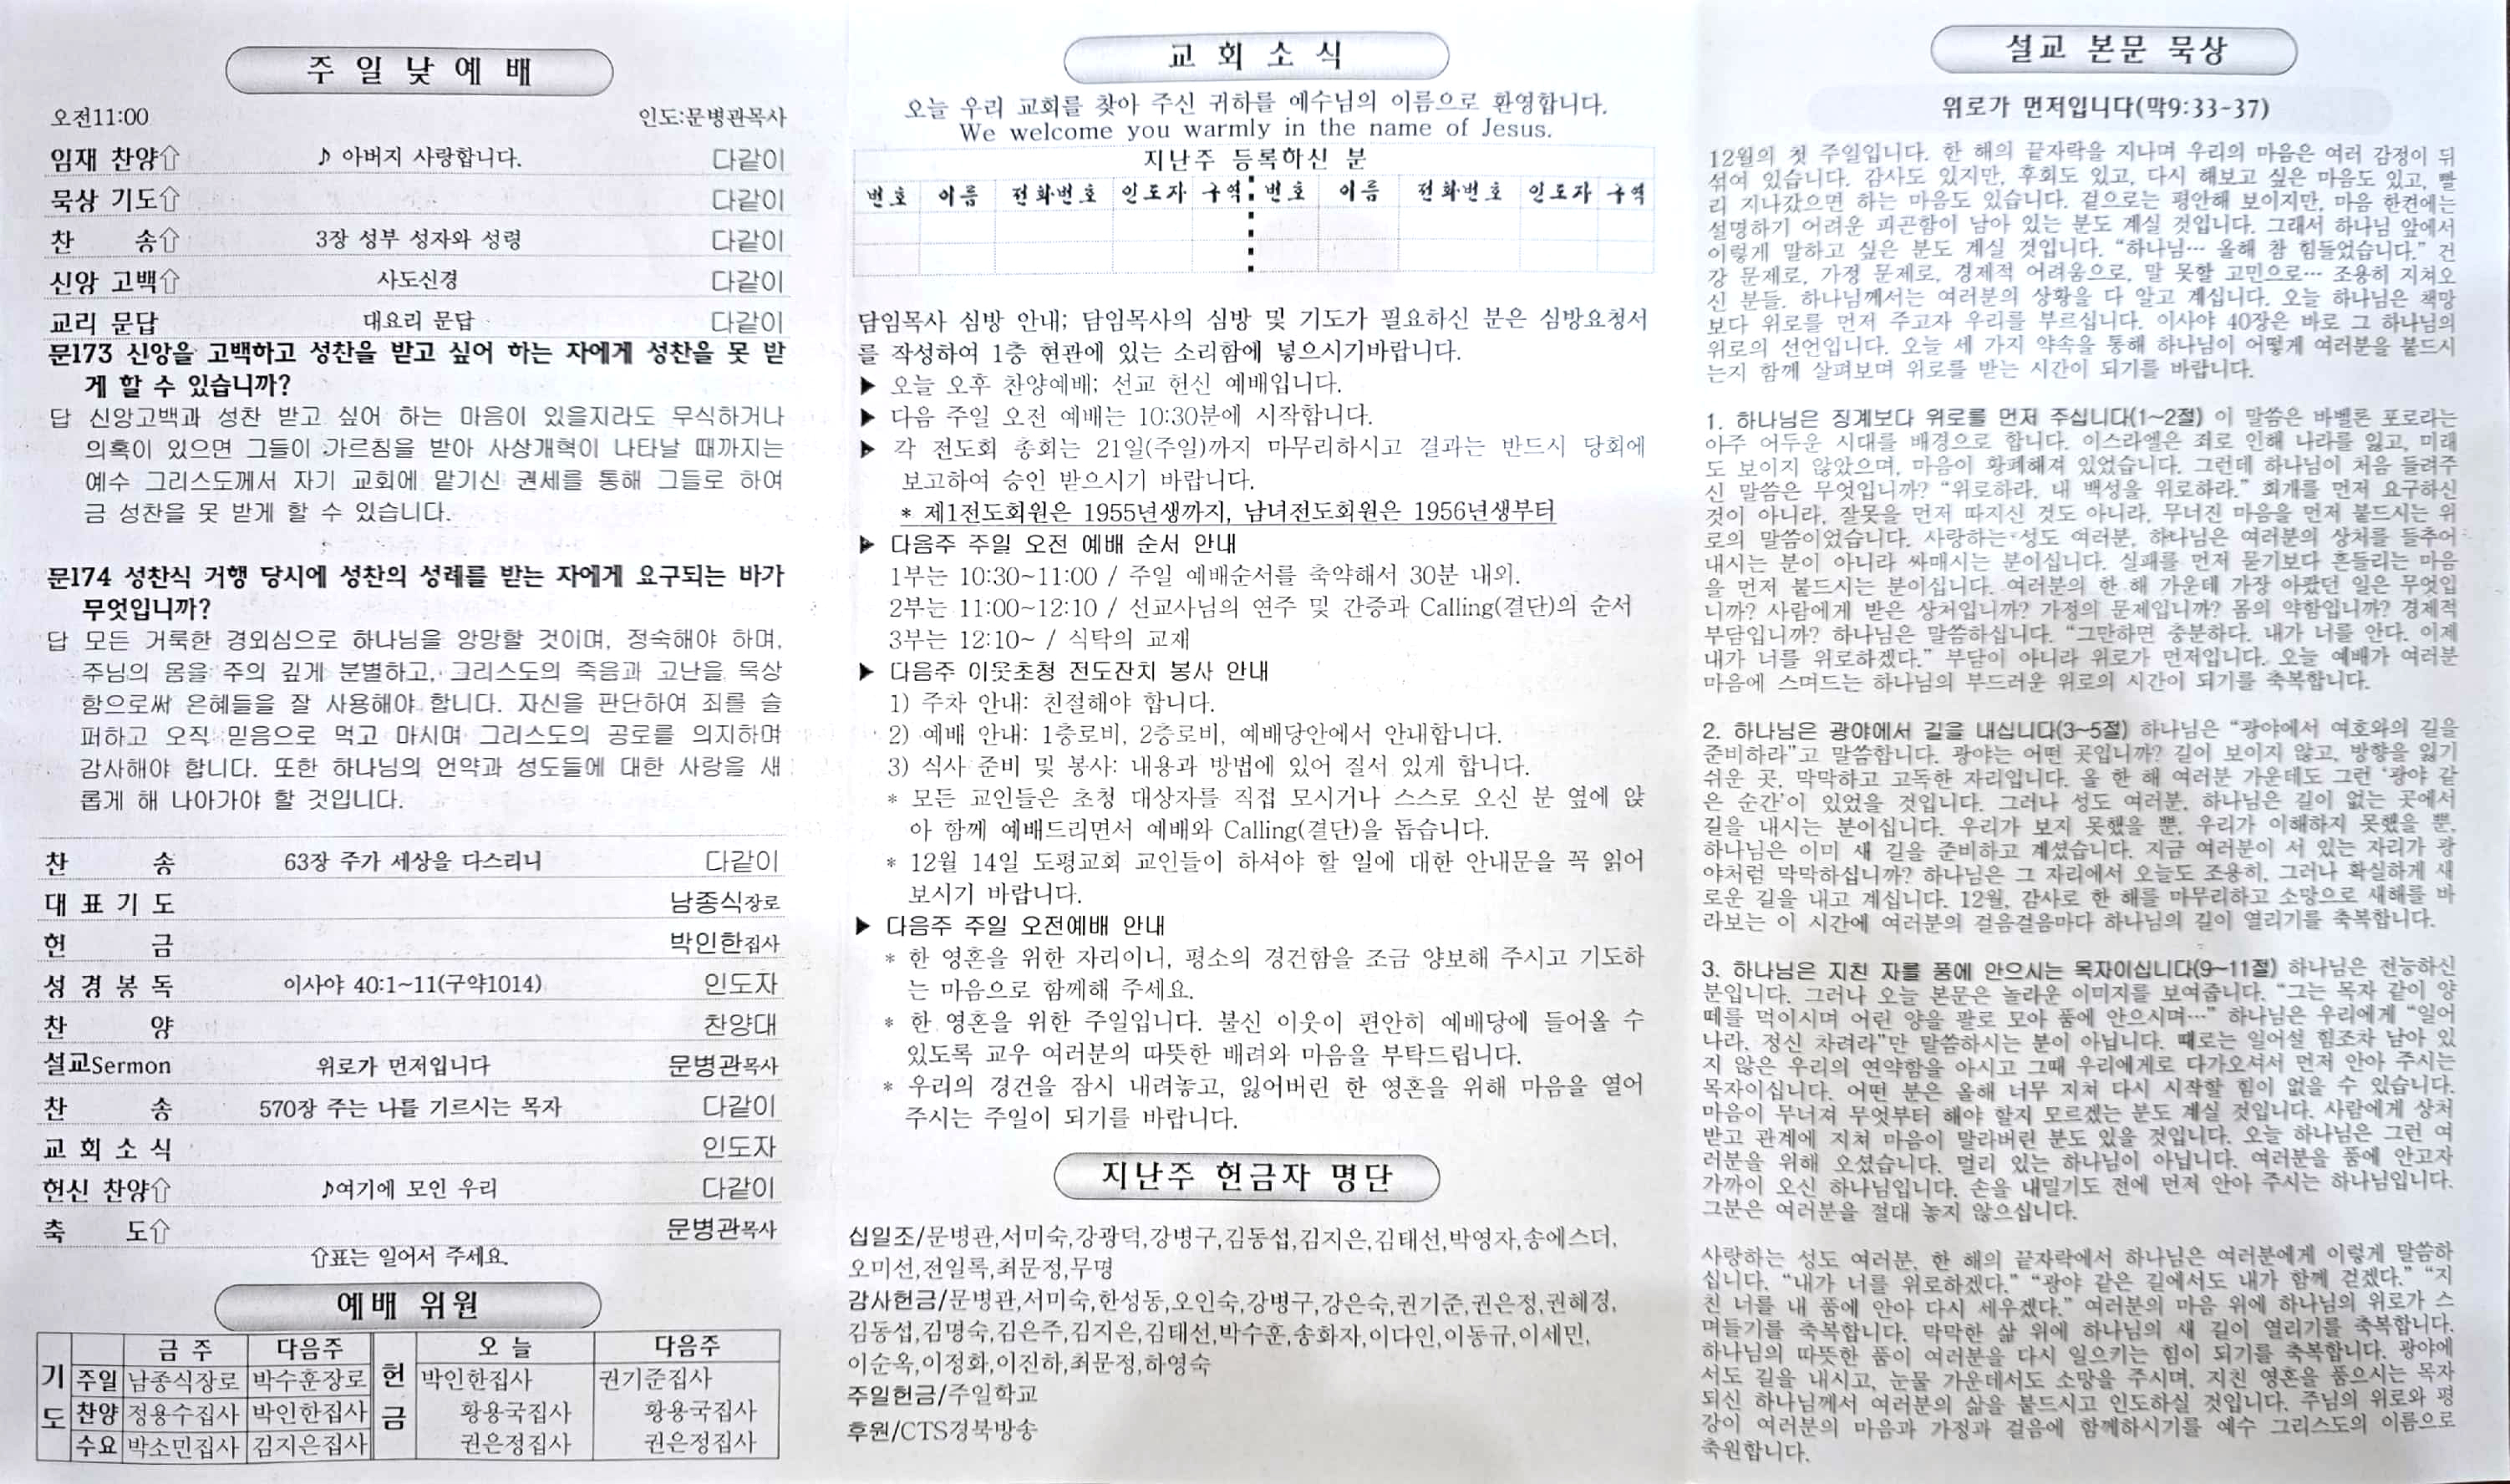 주 일 낮 예 배
오전11:00 인도:문병관목사
임재 찬양⇧ ♪ 아버지 사랑합니다. 다같이
묵상 기도⇧ 다같이
찬 송⇧ 3장 성부 성자와 성령 다같이
신앙 고백⇧ 사도신경 다같이
교리 문답 대요리 문답 다같이
문173 신앙을 고백하고 성찬을 받고 싶어 하는 자에게 성찬을 못 받
게 할 수 있습니까?
답 신앙고백과 성찬 받고 싶어 하는 마음이 있을지라도 무식하거나
의혹이 있으면 그들이 가르침을 받아 사상개혁이 나타날 때까지는
예수 그리스도께서 자기 교회에 맡기신 권세를 통해 그들로 하여
금 성찬을 못 받게 할 수 있습니다.
문174 성찬식 거행 당시에 성찬의 성례를 받는 자에게 요구되는 바가
무엇입니까?
답 모든 거룩한 경외심으로 하나님을 앙망할 것이며, 정숙해야 하며,
주님의 몸을 주의 깊게 분별하고, 그리스도의 죽음과 고난을 묵상
함으로써 은혜들을 잘 사용해야 합니다. 자신을 판단하여 죄를 슬
퍼하고 오직 믿음으로 먹고 마시며 그리스도의 공로를 의지하며
감사해야 합니다. 또한 하나님의 언약과 성도들에 대한 사랑을 새
롭게 해 나아가야 할 것입니다.
찬 송 63장 주가 세상을 다스리니 다같이
대 표 기 도 남종식장로
헌 금 박인한집사
성 경 봉 독 이사야 40:1~11(구약1014) 인도자
찬 양 찬양대
설교Sermon 위로가 먼저입니다 문병관목사
찬 송 570장 주는 나를 기르시는 목자 다같이
교 회 소 식 인도자
헌신 찬양⇧ ♪여기에 모인 우리 다같이
축 도⇧ 문병관목사
⇧표는 일어서 주세요.
예배 위원
기도 금 주 다음주 헌금 오 늘 다음주
주일 남종식장로 박수훈장로 박인한집사 권기준집사
찬양 정용수집사 박인한집사 황용국집사 황용국집사
수요 박소민집사 김지은집사 권은정집사 권은정집사
교 회 소 식
오늘 우리 교회를 찾아 주신 귀하를 예수님의 이름으로 환영합니다.
We welcome you warmly in the name of Jesus.
지난주 등록하신 분
번호 이름 전화번호 인도자 구역 번호 이름 전화번호 인도자 구역
담임목사 심방 안내; 담임목사의 심방 및 기도가 필요하신 분은 심방요청서
를 작성하여 1층 현관에 있는 소리함에 넣으시기바랍니다.
▶ 오늘 오후 찬양예배; 선교 헌신 예배입니다.
▶ 다음 주일 오전 예배는 10:30분에 시작합니다.
▶ 각 전도회 총회는 21일(주일)까지 마무리하시고 결과는 반드시 당회에
보고하여 승인 받으시기 바랍니다.
* 제1전도회원은 1955년생까지, 남녀전도회원은 1956년생부터
▶ 다음주 주일 오전 예배 순서 안내
1부는 10:30~11:00 / 주일 예배순서를 축약해서 30분 내외.
2부는 11:00~12:10 / 선교사님의 연주 및 간증과 Calling(결단)의 순서
3부는 12:10~ / 식탁의 교재
▶ 다음주 이웃초청 전도잔치 봉사 안내
1) 주차 안내: 친절해야 합니다.
2) 예배 안내: 1층로비, 2층로비, 예배당안에서 안내합니다.
3) 식사 준비 및 봉사: 내용과 방법에 있어 질서 있게 합니다.
* 모든 교인들은 초청 대상자를 직접 모시거나 스스로 오신 분 옆에 앉
아 함께 예배드리면서 예배와 Calling(결단)을 돕습니다.
* 12월 14일 도평교회 교인들이 하셔야 할 일에 대한 안내문을 꼭 읽어
보시기 바랍니다.
▶ 다음주 주일 오전예배 안내
* 한 영혼을 위한 자리이니, 평소의 경건함을 조금 양보해 주시고 기도하
는 마음으로 함께해 주세요.
* 한 영혼을 위한 주일입니다. 불신 이웃이 편안히 예배당에 들어올 수
있도록 교우 여러분의 따뜻한 배려와 마음을 부탁드립니다.
* 우리의 경건을 잠시 내려놓고, 잃어버린 한 영혼을 위해 마음을 열어
주시는 주일이 되기를 바랍니다.
지난주 헌금자 명단
십일조/문병관,서미숙,강광덕,강병구,김동섭,김지은,김태선,박영자,송에스더,
오미선,전일록,최문정,무명
감사헌금/문병관,서미숙,한성동,오인숙,강병구,강은숙,권기준,권은정,권혜경,
김동섭,김명숙,김은주,김지은,김태선,박수훈,송화자,이다인,이동규,이세민,
이순옥,이정화,이진하,최문정,하영숙
주일헌금/주일학교
후원/CTS경북방송
설교 본문 묵상
위로가 먼저입니다(막9:33-37)
12월의 첫 주일입니다. 한 해의 끝자락을 지나며 우리의 마음은 여러 감정이 뒤
섞여 있습니다. 감사도 있지만, 후회도 있고, 다시 해보고 싶은 마음도 있고, 빨
리 지나갔으면 하는 마음도 있습니다. 겉으로는 평안해 보이지만, 마음 한켠에는
설명하기 어려운 피곤함이 남아 있는 분도 계실 것입니다. 그래서 하나님 앞에서
이렇게 말하고 싶은 분도 계실 것입니다. “하나님… 올해 참 힘들었습니다.” 건
강 문제로, 가정 문제로, 경제적 어려움으로, 말 못할 고민으로… 조용히 지쳐오
신 분들. 하나님께서는 여러분의 상황을 다 알고 계십니다. 오늘 하나님은 책망
보다 위로를 먼저 주고자 우리를 부르십니다. 이사야 40장은 바로 그 하나님의
위로의 선언입니다. 오늘 세 가지 약속을 통해 하나님이 어떻게 여러분을 붙드시
는지 함께 살펴보며 위로를 받는 시간이 되기를 바랍니다.
1. 하나님은 징계보다 위로를 먼저 주십니다(1~2절) 이 말씀은 바벨론 포로라는
아주 어두운 시대를 배경으로 합니다. 이스라엘은 죄로 인해 나라를 잃고, 미래
도 보이지 않았으며, 마음이 황폐해져 있었습니다. 그런데 하나님이 처음 들려주
신 말씀은 무엇입니까? “위로하라, 내 백성을 위로하라.” 회개를 먼저 요구하신
것이 아니라, 잘못을 먼저 따지신 것도 아니라, 무너진 마음을 먼저 붙드시는 위
로의 말씀이었습니다. 사랑하는 성도 여러분, 하나님은 여러분의 상처를 들추어
내시는 분이 아니라 싸매시는 분이십니다. 실패를 먼저 묻기보다 흔들리는 마음
을 먼저 붙드시는 분이십니다. 여러분의 한 해 가운데 가장 아팠던 일은 무엇입
니까? 사람에게 받은 상처입니까? 가정의 문제입니까? 몸의 약함입니까? 경제적
부담입니까? 하나님은 말씀하십니다. “그만하면 충분하다. 내가 너를 안다. 이제
내가 너를 위로하겠다.” 부담이 아니라 위로가 먼저입니다. 오늘 예배가 여러분
마음에 스며드는 하나님의 부드러운 위로의 시간이 되기를 축복합니다.
2. 하나님은 광야에서 길을 내십니다(3~5절) 하나님은 “광야에서 여호와의 길을
준비하라”고 말씀합니다. 광야는 어떤 곳입니까? 길이 보이지 않고, 방향을 잃기
쉬운 곳, 막막하고 고독한 자리입니다. 올 한 해 여러분 가운데도 그런 ‘광야 같
은 순간’이 있었을 것입니다. 그러나 성도 여러분, 하나님은 길이 없는 곳에서
길을 내시는 분이십니다. 우리가 보지 못했을 뿐, 우리가 이해하지 못했을 뿐,
하나님은 이미 새 길을 준비하고 계셨습니다. 지금 여러분이 서 있는 자리가 광
야처럼 막막하십니까? 하나님은 그 자리에서 오늘도 조용히, 그러나 확실하게 새
로운 길을 내고 계십니다. 12월, 감사로 한 해를 마무리하고 소망으로 새해를 바
라보는 이 시간에 여러분의 걸음걸음마다 하나님의 길이 열리기를 축복합니다.
3. 하나님은 지친 자를 품에 안으시는 목자이십니다(9~11절) 하나님은 전능하신
분입니다. 그러나 오늘 본문은 놀라운 이미지를 보여줍니다. “그는 목자 같이 양
떼를 먹이시며 어린 양을 팔로 모아 품에 안으시며…” 하나님은 우리에게 “일어
나라, 정신 차려라”만 말씀하시는 분이 아닙니다. 때로는 일어설 힘조차 남아 있
지 않은 우리의 연약함을 아시고 그때 우리에게로 다가오셔서 먼저 안아 주시는
목자이십니다. 어떤 분은 올해 너무 지쳐 다시 시작할 힘이 없을 수 있습니다.
마음이 무너져 무엇부터 해야 할지 모르겠는 분도 계실 것입니다. 사람에게 상처
받고 관계에 지쳐 마음이 말라버린 분도 있을 것입니다. 오늘 하나님은 그런 여
러분을 위해 오셨습니다. 멀리 있는 하나님이 아닙니다. 여러분을 품에 안고자
가까이 오신 하나님입니다. 손을 내밀기도 전에 먼저 안아 주시는 하나님입니다.
그분은 여러분을 절대 놓지 않으십니다.
사랑하는 성도 여러분, 한 해의 끝자락에서 하나님은 여러분에게 이렇게 말씀하
십니다. “내가 너를 위로하겠다.” “광야 같은 길에서도 내가 함께 걷겠다.” “지
친 너를 내 품에 안아 다시 세우겠다.” 여러분의 마음 위에 하나님의 위로가 스
며들기를 축복합니다. 막막한 삶 위에 하나님의 새 길이 열리기를 축복합니다.
하나님의 따뜻한 품이 여러분을 다시 일으키는 힘이 되기를 축복합니다. 광야에
서도 길을 내시고, 눈물 가운데서도 소망을 주시며, 지친 영혼을 품으시는 목자
되신 하나님께서 여러분의 삶을 붙드시고 인도하실 것입니다. 주님의 위로와 평
강이 여러분의 마음과 가정과 걸음에 함께하시기를 예수 그리스도의 이름으로
축원합니다.